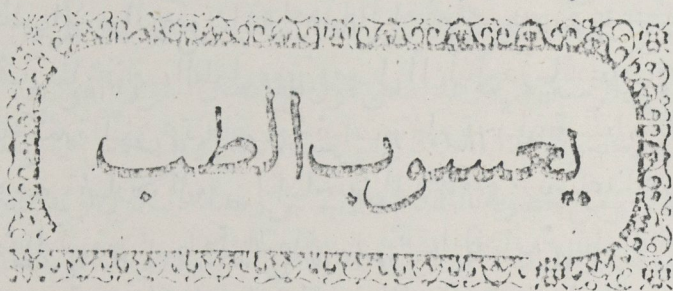 يعسوب الطب